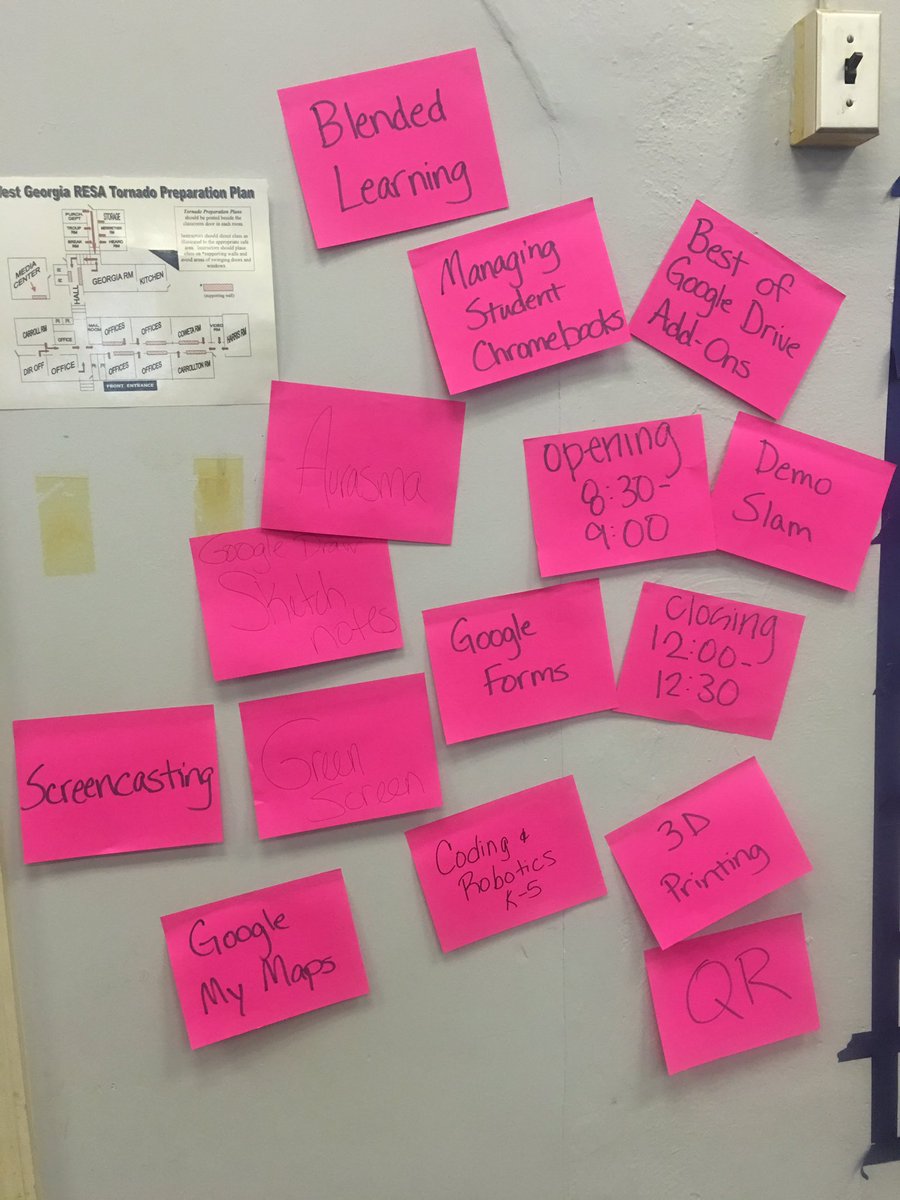 Blended
Learning
est Georgia RESA Tornado Preparation Plan
PURCH
DEPT
STORAGE
TROUP
RM
MERIWETHER
RM
BREAK
RM
HEARD
RM
Tornado Preparation Plans
should be posted beside the
classroom door in each room.
Instructors should direct class as
illustrated to the appropriate safe
area. Instructors should place
class on *supporting walls and
avoid areas of swinging doors and
windows
(supporting wall)
MEDIA
CENTER
GEORGIA RM
KITCHEN
HALL
CARROLL RM
OFFICE
MAIL
ROOM
OFFICES
OFFICES
COWETA RM
VIDEO
RM
HARRIS RM
DIR OFF
OFFICE
OFFICES
OFFICES
CARROLLTON RM
FRONT ENTRANCE
Managing
Student
Chromebooks
Best of
Google Drive
Add-Ons
Aurasma
opening
8:30-
9:00
Demo
Slam
Google Draw
Sketch
notes
Google
Forms
Closing
12:00-
12:30
Screencasting
Green
Screen
Coding &
Robotics
K-5
3D
Printing
Google
My Maps
QR